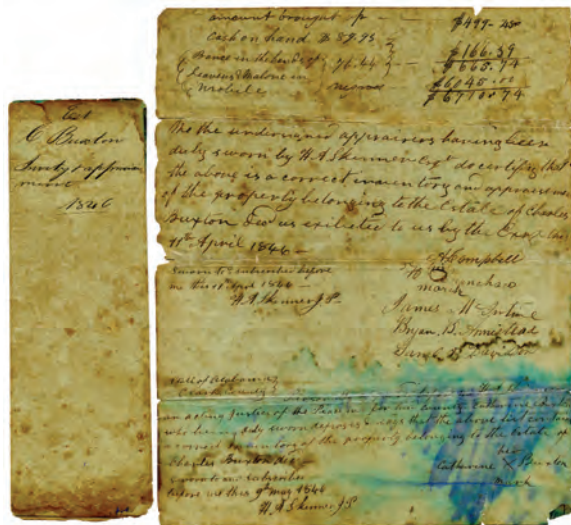 Est
C Buxton
Invty & appraise
ment
1846
amount brought fr — $499.25
Cash on hand $ 89.95
Bance in the hands of 76.44 — $166.39
$665.74
Mobile negroes $6045.00
$6710.74
We the undersigned appraisers having been
duly sworn by H. A. Skinner Esqr do certify that
the above is a correct inventory and appraisement
of the property belonging to the Estate of Charles
Buxton Decd as exibeted to us by the
11th April 1846 —
Sworn to & subscribed before
me this 11th April 1846 —
H. A. Skinner J.P.
Campbell
his
mark
James
Bryan
Davidson
State of Alabama
Clarke County
an acting Justice of the Peace for said County Catherine
who having duly sworn deposes & says that the above list contains
a correct inventory of the property belonging to the Estate of
Charles Buxton Decd
Sworn to and subscribed
before me this 9th May 1846
H. A. Skinner J.P.
her
Catherine X Buxton
mark